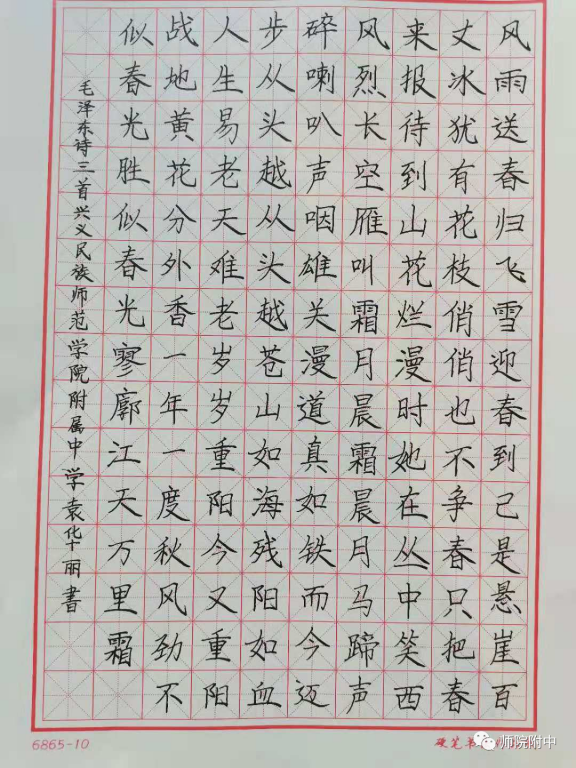 风雨送春归飞雪迎春到己是悬崖百
丈冰犹有花枝俏俏也不争春只把春
来报待到山花烂漫时她在丛中笑西
风烈长空雁叫霜月晨霜晨月马蹄声
碎喇叭声咽雄关漫道真如铁而今迈
步从头越从头越苍山如海残阳如血
人生易老天难老岁岁重阳今又重阳
战地黄花分外香一年一度秋风劲不
似春光胜似春光寥廓江天万里霜
毛泽东诗三首兴义民族师范学院附属中学袁华丽書
6865-10
硬笔书
师院附中